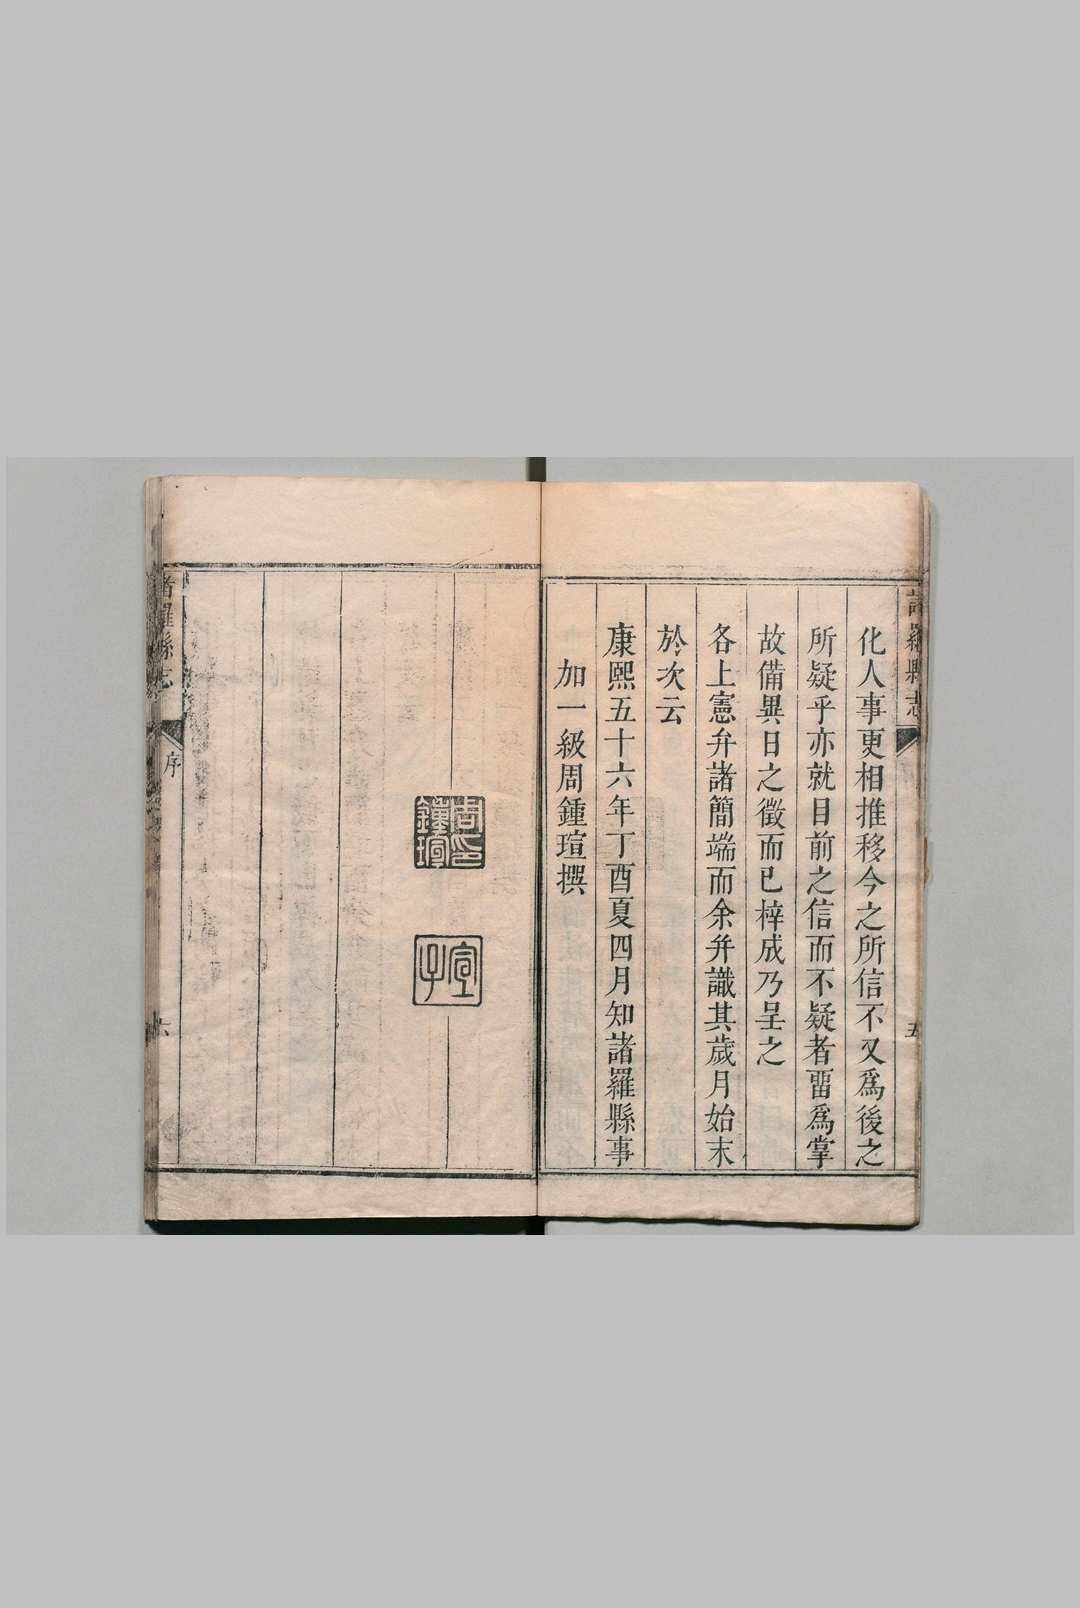 諸羅縣志
五
化人事更相推移今之所信不又爲後之
所疑乎亦就目前之信而不疑者畱爲掌
故備異日之徵而已梓成乃呈之
各上憲弁諸簡端而余弁識其歲月始末
於次云
康熙五十六年丁酉夏四月知諸羅縣事
加一級周鍾瑄撰
周印
鍾瑄
宣
子
諸羅縣志
序
六